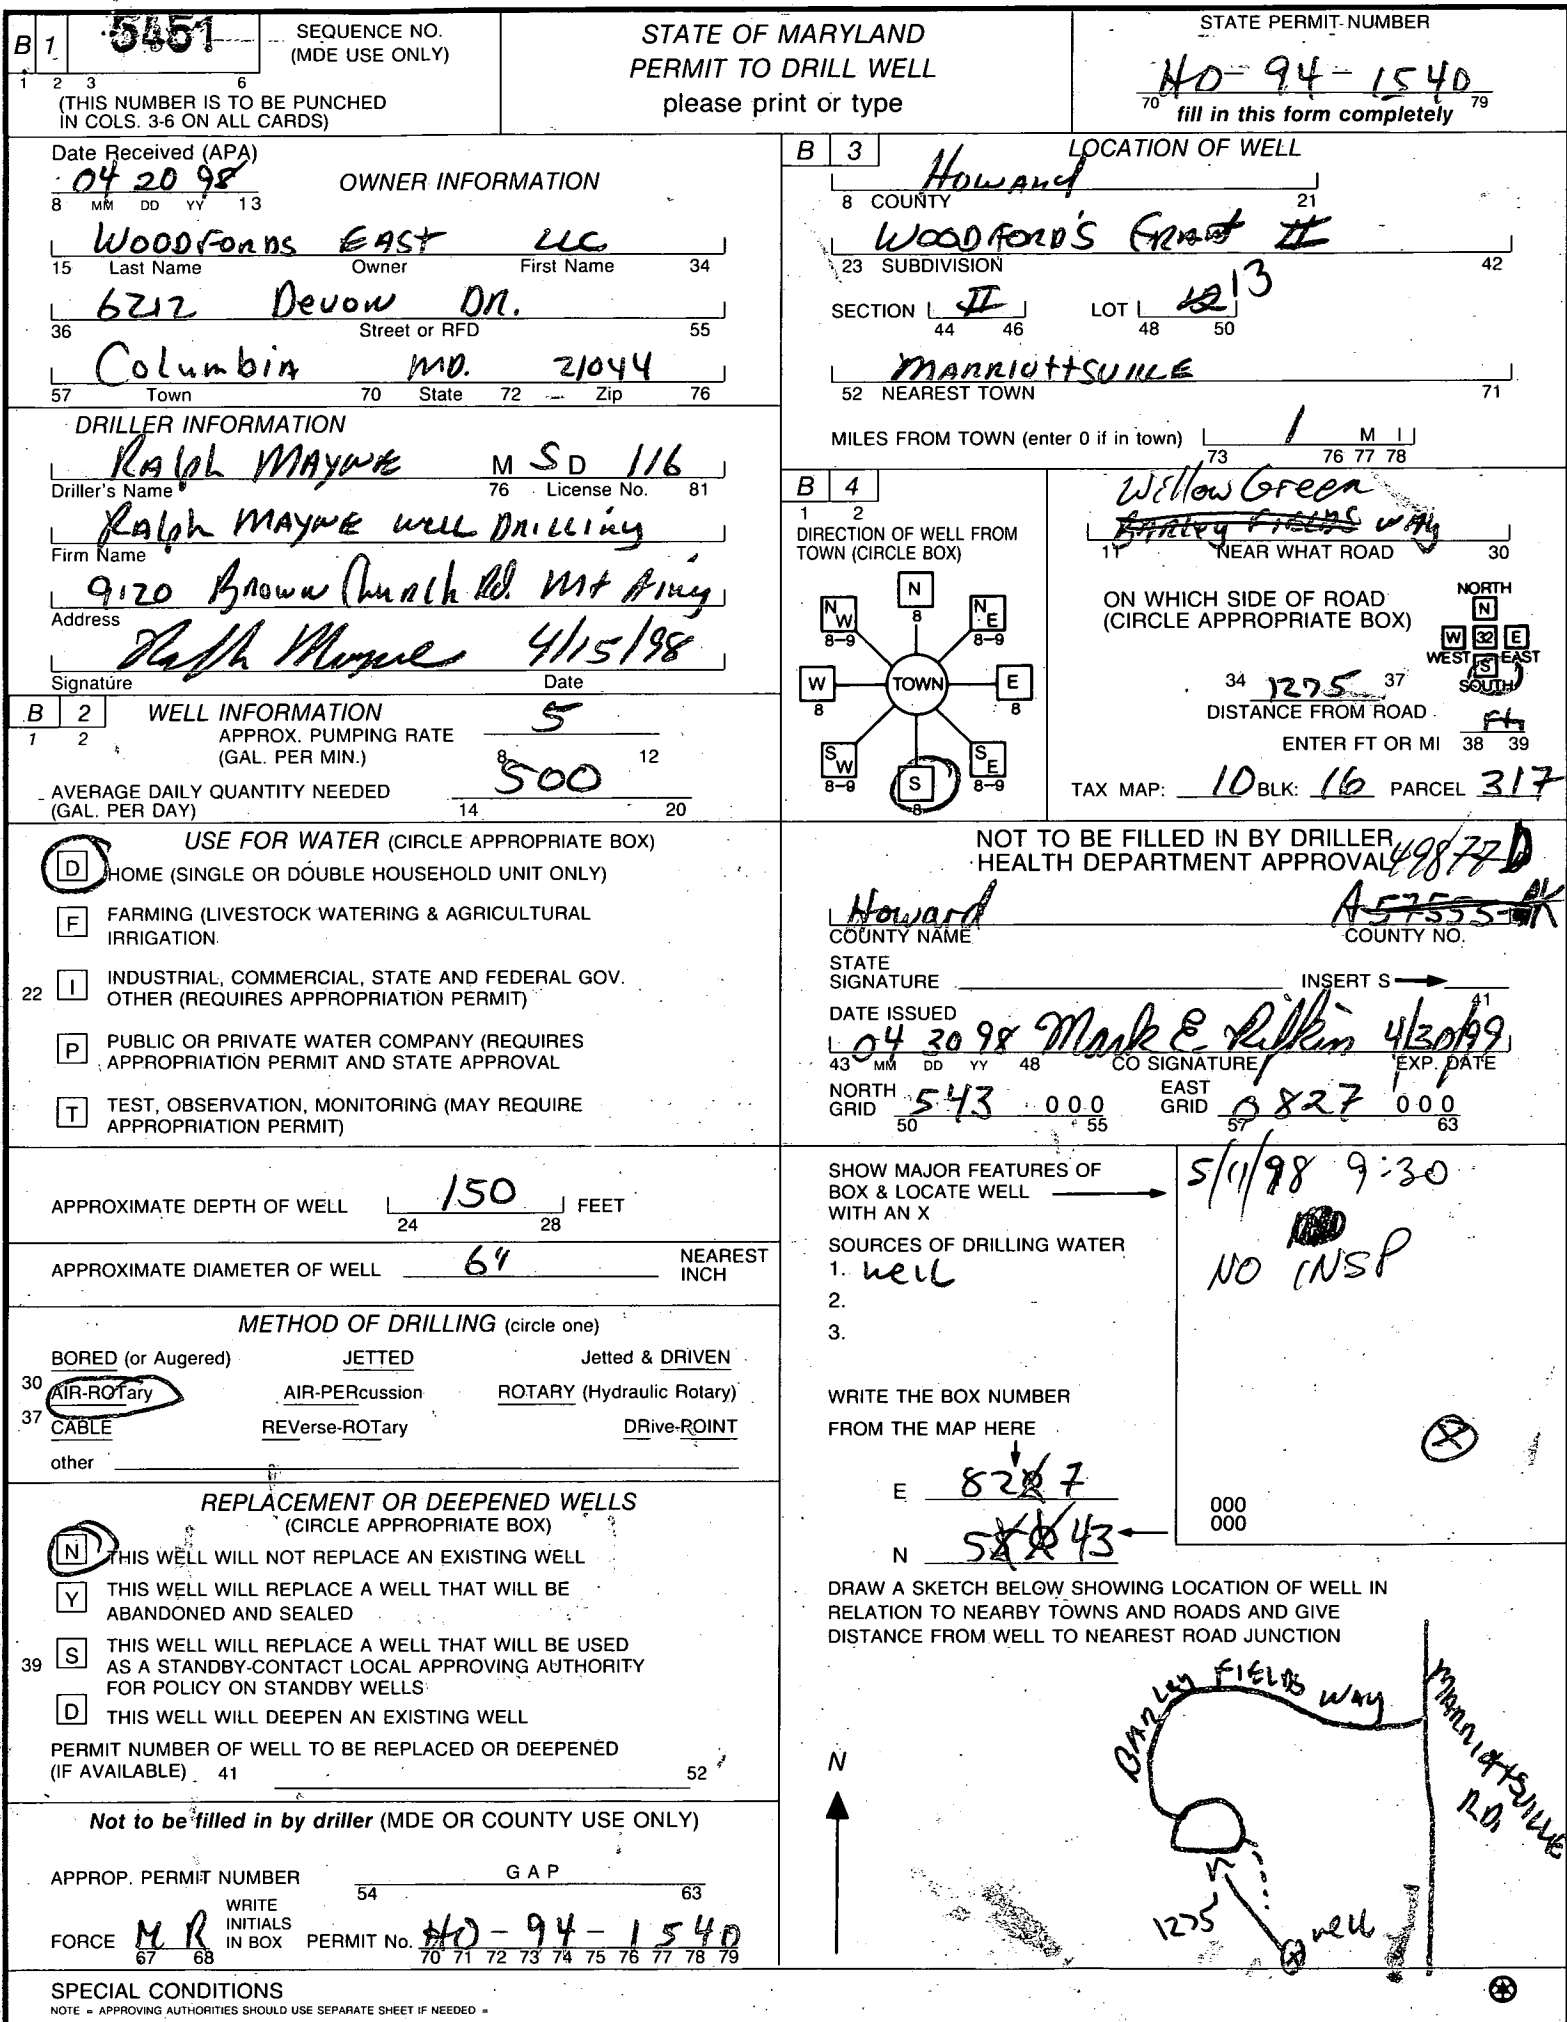 B 1
5451
SEQUENCE NO.
(MDE USE ONLY)
1 2 3 6
(THIS NUMBER IS TO BE PUNCHED
IN COLS. 3-6 ON ALL CARDS)
STATE OF MARYLAND
PERMIT TO DRILL WELL
please print or type
STATE PERMIT NUMBER
HO-94-1540
70 79
fill in this form completely
Date Received (APA)
04 20 98
8 MM DD YY 13
OWNER INFORMATION
WOODFORDS EAST LLC
15 Last Name Owner First Name 34
6212 Devon DR.
36 Street or RFD 55
Columbia MD. 21044
57 Town 70 State 72 Zip 76
DRILLER INFORMATION
Ralph MAYNE M S D 116
Driller's Name 76 License No. 81
Ralph MAYNE Well DRILLING
Firm Name
9120 Brown Church Rd. Mt Airy
Address
Ralph Mayne 4/15/98
Signature Date
B 2
1 2
WELL INFORMATION
APPROX. PUMPING RATE
(GAL. PER MIN.)
5
8 12
AVERAGE DAILY QUANTITY NEEDED
(GAL. PER DAY)
500
14 20
USE FOR WATER (CIRCLE APPROPRIATE BOX)
D HOME (SINGLE OR DOUBLE HOUSEHOLD UNIT ONLY)
F FARMING (LIVESTOCK WATERING & AGRICULTURAL
IRRIGATION
22 I INDUSTRIAL, COMMERCIAL, STATE AND FEDERAL GOV.
OTHER (REQUIRES APPROPRIATION PERMIT)
P PUBLIC OR PRIVATE WATER COMPANY (REQUIRES
APPROPRIATION PERMIT AND STATE APPROVAL
T TEST, OBSERVATION, MONITORING (MAY REQUIRE
APPROPRIATION PERMIT)
APPROXIMATE DEPTH OF WELL 150 FEET
24 28
APPROXIMATE DIAMETER OF WELL 6" NEAREST
INCH
METHOD OF DRILLING (circle one)
BORED (or Augered) JETTED Jetted & DRIVEN
30 AIR-ROTary AIR-PERcussion ROTARY (Hydraulic Rotary)
37 CABLE REVerse-ROTary DRive-POINT
other
REPLACEMENT OR DEEPENED WELLS
(CIRCLE APPROPRIATE BOX)
N THIS WELL WILL NOT REPLACE AN EXISTING WELL
Y THIS WELL WILL REPLACE A WELL THAT WILL BE
ABANDONED AND SEALED
39 S THIS WELL WILL REPLACE A WELL THAT WILL BE USED
AS A STANDBY-CONTACT LOCAL APPROVING AUTHORITY
FOR POLICY ON STANDBY WELLS
D THIS WELL WILL DEEPEN AN EXISTING WELL
PERMIT NUMBER OF WELL TO BE REPLACED OR DEEPENED
(IF AVAILABLE) 41 52
Not to be filled in by driller (MDE OR COUNTY USE ONLY)
APPROP. PERMIT NUMBER G A P
54 63
FORCE M R
67 68
WRITE
INITIALS
IN BOX
PERMIT No. HO-94-1540
70 71 72 73 74 75 76 77 78 79
SPECIAL CONDITIONS
NOTE = APPROVING AUTHORITIES SHOULD USE SEPARATE SHEET IF NEEDED =
B 3
LOCATION OF WELL
Howard
8 COUNTY 21
WOODFORD'S Grant II
23 SUBDIVISION 42
SECTION II LOT 12 13
44 46 48 50
MARRIOTTSVILLE
52 NEAREST TOWN 71
MILES FROM TOWN (enter 0 if in town) 1 M I
73 76 77 78
B 4
1 2
DIRECTION OF WELL FROM
TOWN (CIRCLE BOX)
N
8
NW
8-9
NE
8-9
W
8
TOWN
E
8
SW
8-9
S
8
SE
8-9
Willow Green
Barley FIELDS WAy
11 NEAR WHAT ROAD 30
ON WHICH SIDE OF ROAD
(CIRCLE APPROPRIATE BOX)
NORTH
N
W 32 E
WEST S EAST
SOUTH
34 1275 37
DISTANCE FROM ROAD
ENTER FT OR MI Ft
38 39
TAX MAP: 10 BLK: 16 PARCEL 317
NOT TO BE FILLED IN BY DRILLER
HEALTH DEPARTMENT APPROVAL 49877 D
Howard A57555-AK
COUNTY NAME COUNTY NO.
STATE
SIGNATURE INSERT S
41
DATE ISSUED
04 30 98 Mark E. Rifkin 4/30/99
43 MM DD YY 48 CO SIGNATURE EXP. DATE
NORTH
GRID 543 000
50 55
EAST
GRID 0827 000
57 63
SHOW MAJOR FEATURES OF
BOX & LOCATE WELL
WITH AN X
SOURCES OF DRILLING WATER
1. well
2.
3.
5/11/98 9:30
NO INSP
X
WRITE THE BOX NUMBER
FROM THE MAP HERE
E 827
N 543
000
000
DRAW A SKETCH BELOW SHOWING LOCATION OF WELL IN
RELATION TO NEARBY TOWNS AND ROADS AND GIVE
DISTANCE FROM WELL TO NEAREST ROAD JUNCTION
N
BARLEY FIELDS WAY
MARRIOTTSVILLE
RD.
1275
well